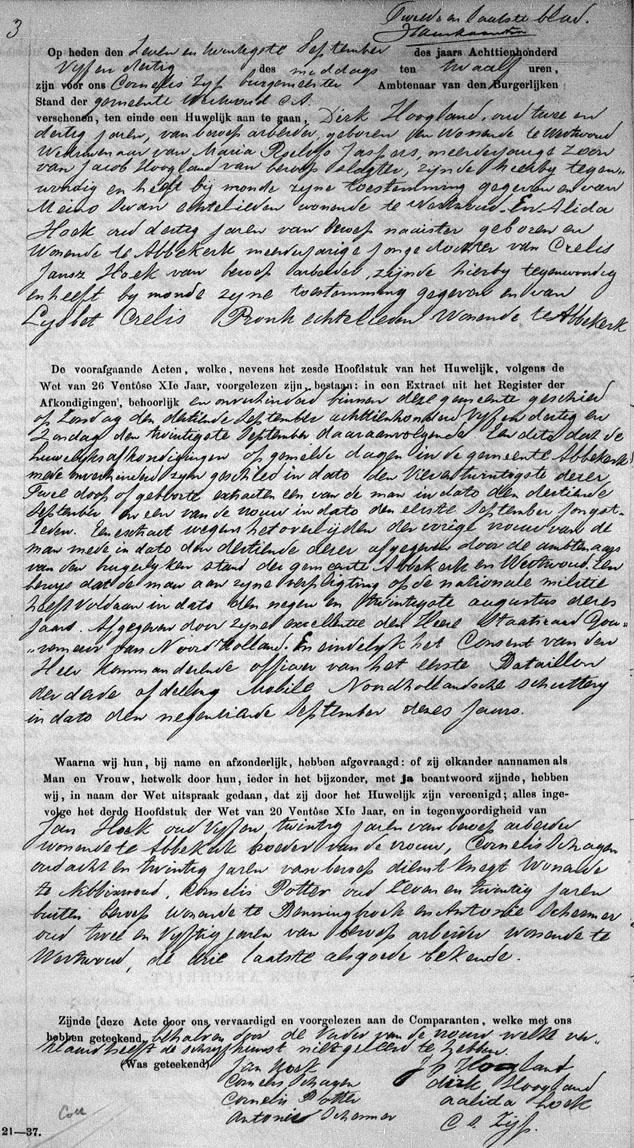 3
Tweede en laatste blad.
Op heden den Zeven en twintigste September des jaars Achttienhonderd
Vijf en dertig des middags ten twaalf uren,
zijn voor ons Cornelis Zijp burgemeester Ambtenaar van den Burgerlijken
Stand der gemeente Wertwoud C.A.
verschenen, ten einde een Huwelijk aan te gaan, Dirk Hoogland, oud twee en
dertig jaren, van beroep arbeider, geboren en Wonende te Wertwoud
Weduwenaar van Maria Jaspers, meerderjarige Zoon
van Jacob Hoogland van beroep slagter, zijnde hierby tegen-
wordig en heeft bij monde zijne toestemming gegeven en van
Meino Swan echtelieden wonende te Wertwoud. En Alida
Hoek oud dertig jaren van beroep naaister geboren en
Wonende te Abbekerk meerderjarige jonge dochter van Crelis
Jansz Hoek van beroep arbeider, zijnde hierby tegenwoordig
en heeft by monde zijne toestemming gegeven en van
Lijsbet Crelis Pronk echtelieden Wonende te Abbekerk
De voorafgaande Acten, welke, nevens het zesde Hoofdstuk van het Huwelijk, volgens de
Wet van 26 Ventôse XIe Jaar, voorgelezen zijn, bestaan: in een Extract uit het Register der
Afkondigingen, behoorlijk en onverhinderd binnen deze gemeente geschied
op Zondag den dertiende September achttienhonderd Vijf en dertig en
Zondag den twintigste September daaraanvolgende. Een dito dat de
huwelijks afkondigingen op gemelde dagen in de gemeente Abbekerk
mede onverhinderd zijn geschied in dato den Vier en twintigste dezer
Twee doop of geboorte extracten een van de man in dato den dertiende
September en een van de vrouw in dato den eerste September jongst-
leden. Een extract wegens het overlijden der vorige vrouw van de
man mede in dato den dertiende dezer afgegeven door de ambtenaars
van den burgerlyken stand der gemeente Abbekerk en Wertwoud. Een
bewys dat de man aan zijne verpligting op de nationale militie
heeft voldaan in dato den negen en twintigste augustus dezes
jaars. Afgegeven door zijne excellentie den Heere Staatsraad Gou-
verneur van Noordholland. En eindelijk het Consent van den
Heer Kommanderende officier van het eerste Bataillon
der derde afdeeling Mobile Noordhollandsche schuttery
in dato den negentiende September dezes jaars.
Waarna wij hun, bij name en afzonderlijk, hebben afgevraagd: of zij elkander aannamen als
Man en Vrouw, hetwelk door hun, ieder in het bijzonder, met ja beantwoord zijnde, hebben
wij, in naam der Wet uitspraak gedaan, dat zij door het Huwelijk zijn vereenigd; alles inge-
volge het derde Hoofdstuk der Wet van 20 Ventôse XIe Jaar, en in tegenwoordigheid van
Jan Hoek oud Vijf en twintig jaren van beroep arbeider
wonende te Abbekerk broeder van de vrouw, Cornelis Schagen
oud acht en twintig jaren van beroep dienstknegt Wonende
te Nibbixwoud, Cornelis Potter oud Zeven en twintig jaren
buiten beroep wonende te Benninghoek en Antonie Schermer
oud twee en Vijftig jaren van beroep arbeider wonende te
Wertwoud, de drie laatste als goede bekende.
Zijnde [deze Acte door ons vervaardigd en voorgelezen aan de Comparanten, welke met ons
hebben geteekend, behalven door de Vader van de vrouw welke ver-
klaard heeft de schryfkunst niet geleerd te hebben
(Was geteekend) Jan Hoek J Hoogland
Cornelis Schagen dirk Hoogland
Cornelis Potter aalida hoek
Antonie Schermer C Zijp.
21—37.